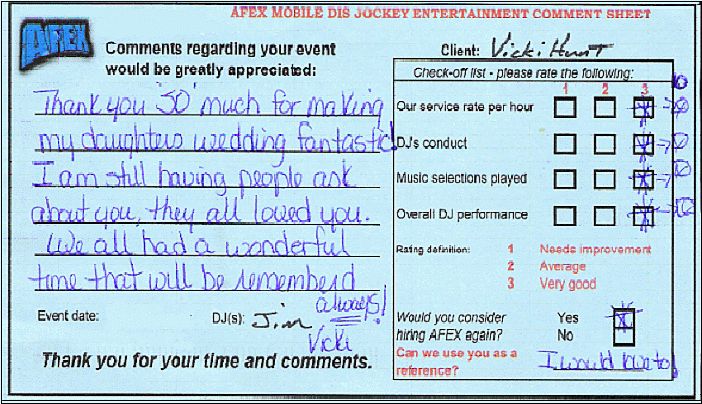 AFEX MOBILE DIS JOCKEY ENTERTAINMENT COMMENT SHEET
AFEX
Comments regarding your event
would be greatly appreciated:
Client: Vicki Hunt
Thank you 'SO' much for making
my daughters wedding fantastic!
I am still having people ask
about you, they all loved you.
We all had a wonderful
time that will be rememberd
always!
Vicki
Event date:
DJ(s): Jim
Thank you for your time and comments.
Check-off list - please rate the following:
1 2 3
Our service rate per hour
DJ's conduct
Music selections played
Overall DJ performance
Rating definition: 1 Needs improvement
2 Average
3 Very good
Would you consider Yes
hiring AFEX again? No
Can we use you as a
reference? I would love to!